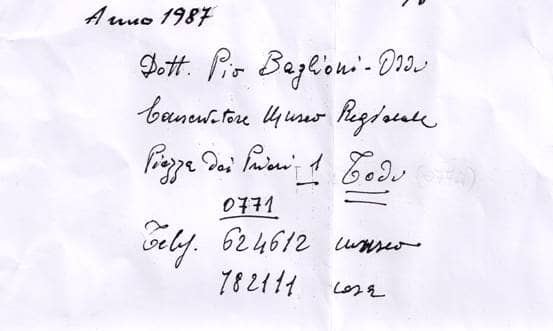 Anno 1987
Dott. Pio Baglioni-Oddi
Conservatore Museo Regionale
Piazza dei Priori 1 Todi
0771
Telef. 624612 museo
782111 casa